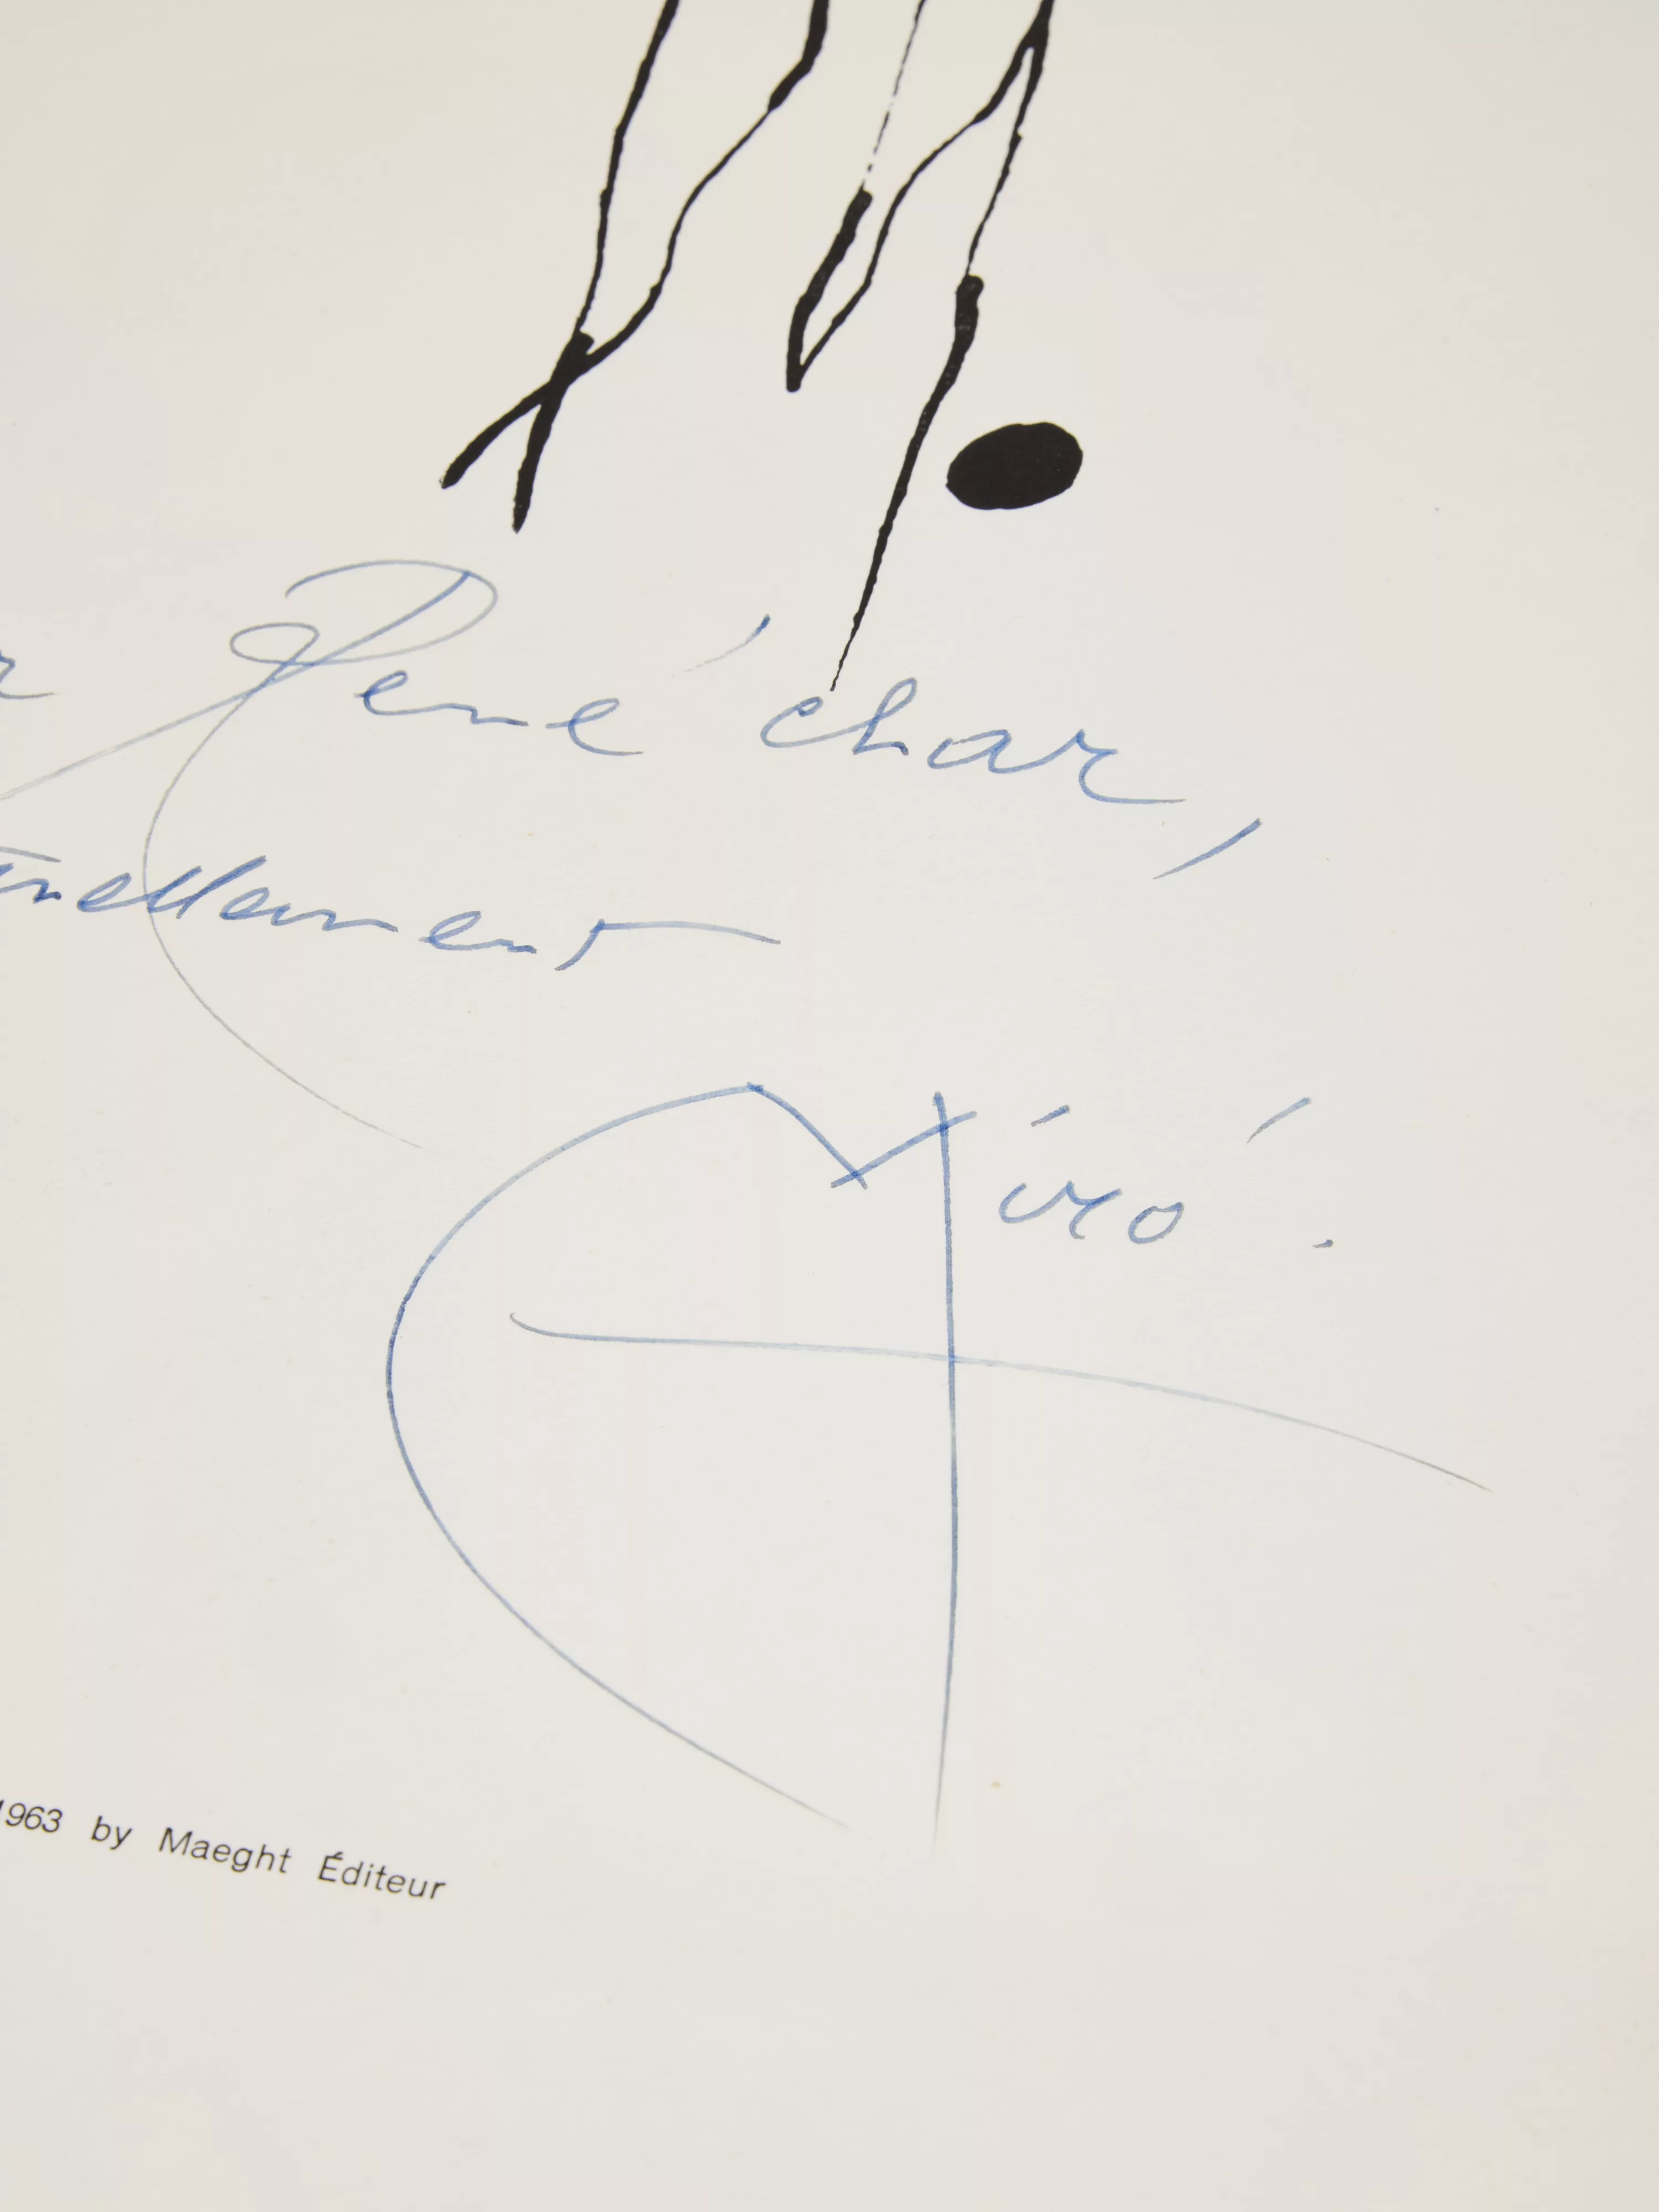 r René Char,
rnellement
Miró.
1963 by Maeght Éditeur